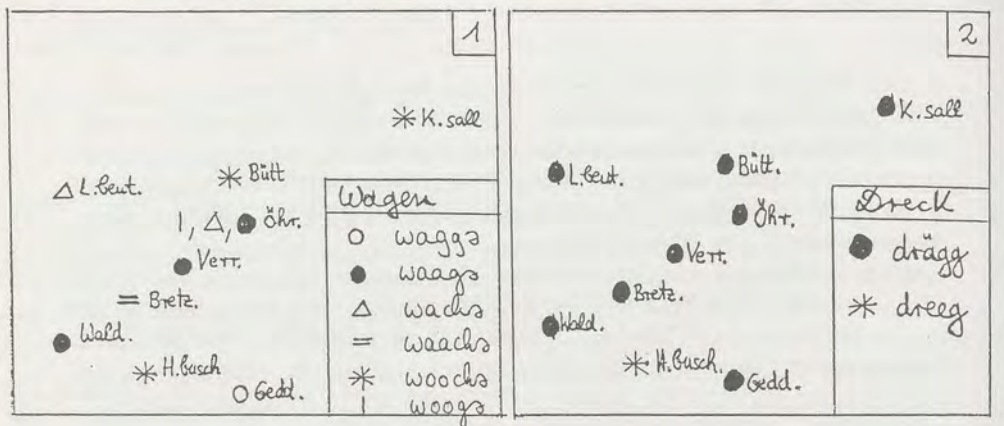 1
K. sall
Bütt
L. beut.
Öhr.
Verr.
Bretz.
Wald.
H. busch
Gedd.
Wagen
waggs
waags
wachs
waachs
woochs
woogs
2
K. sall
Bütt.
L. beut.
Öhr.
Verr.
Bretz.
Wald.
H. busch.
Gedd.
Dreck
drägg
dreeg